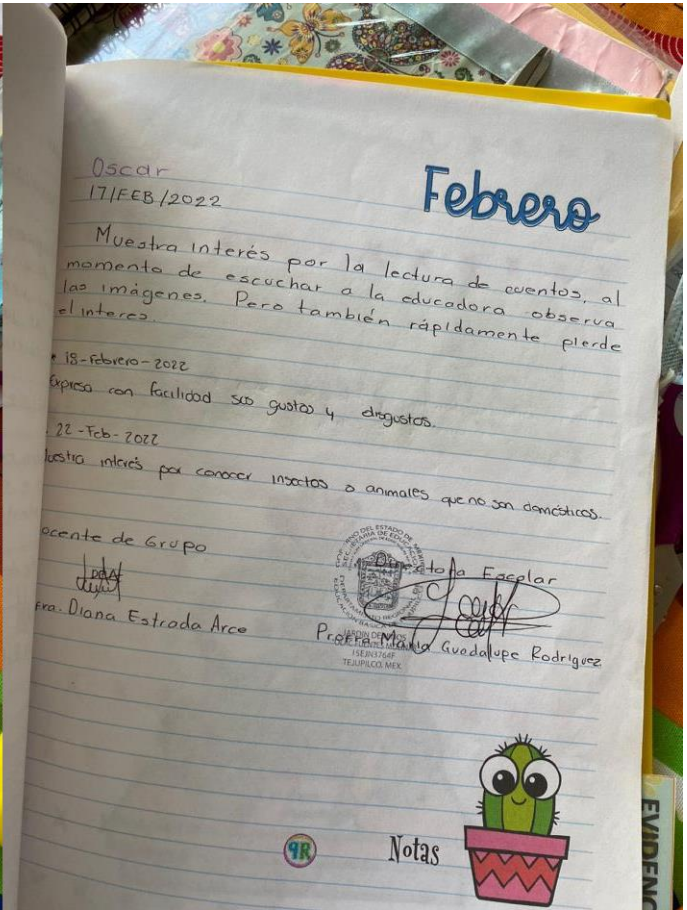 Oscar
17/FEB/2022
Febrero
Muestra interés por la lectura de cuentos, al
momento de escuchar a la educadora observa
las imágenes. Pero también rápidamente pierde
el interes.
18-Febrero-2022
Expresa con facilidad sus gustos y disgustos.
22-Feb-2022
uestra interés por conocer insectos o animales que no son domésticos.
ocente de Grupo
Directora Escolar
fra. Diana Estrada Arce
Profra. María Guadalupe Rodriguez
GOBIERNO DEL ESTADO DE MÉXICO
JARDÍN DE NIÑOS
15EJN3764F
TEJUPILCO, MEX.
Notas
EVIDENC